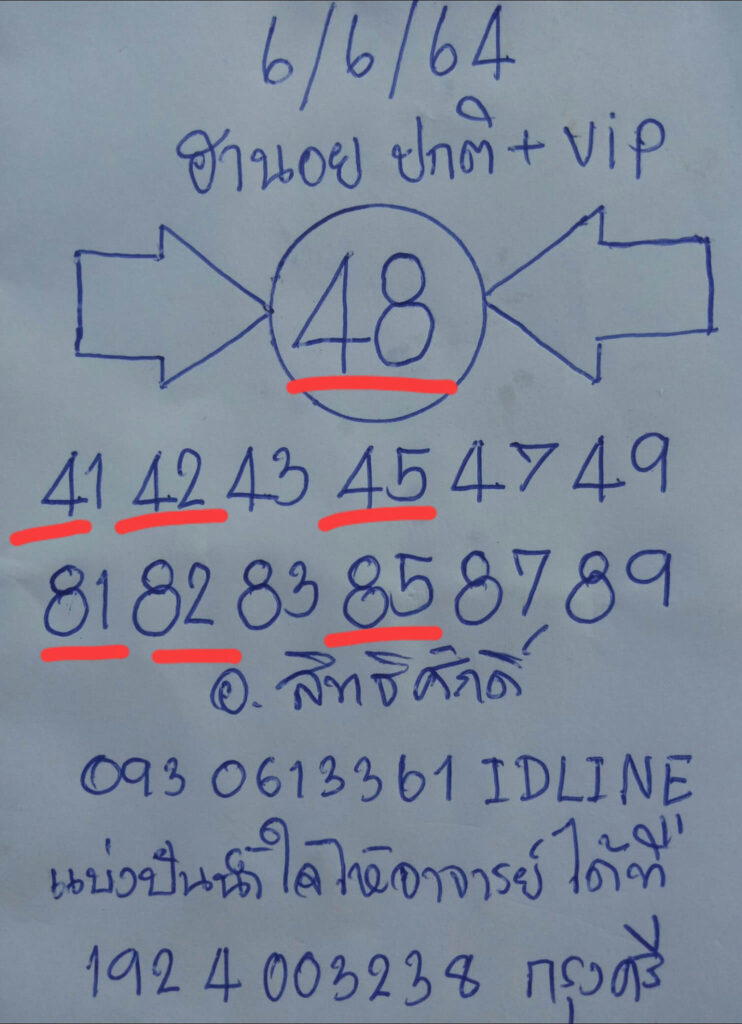 6/6/64
ฮานอย ปกติ + vip
48
41 42 43 45 47 49
81 82 83 85 87 89
อ. สิทธิศักดิ์
093 0613361 IDLINE
แบ่งปันน้ำใจให้อาจารย์ได้ที่
192 4 003238 กรุงศรี